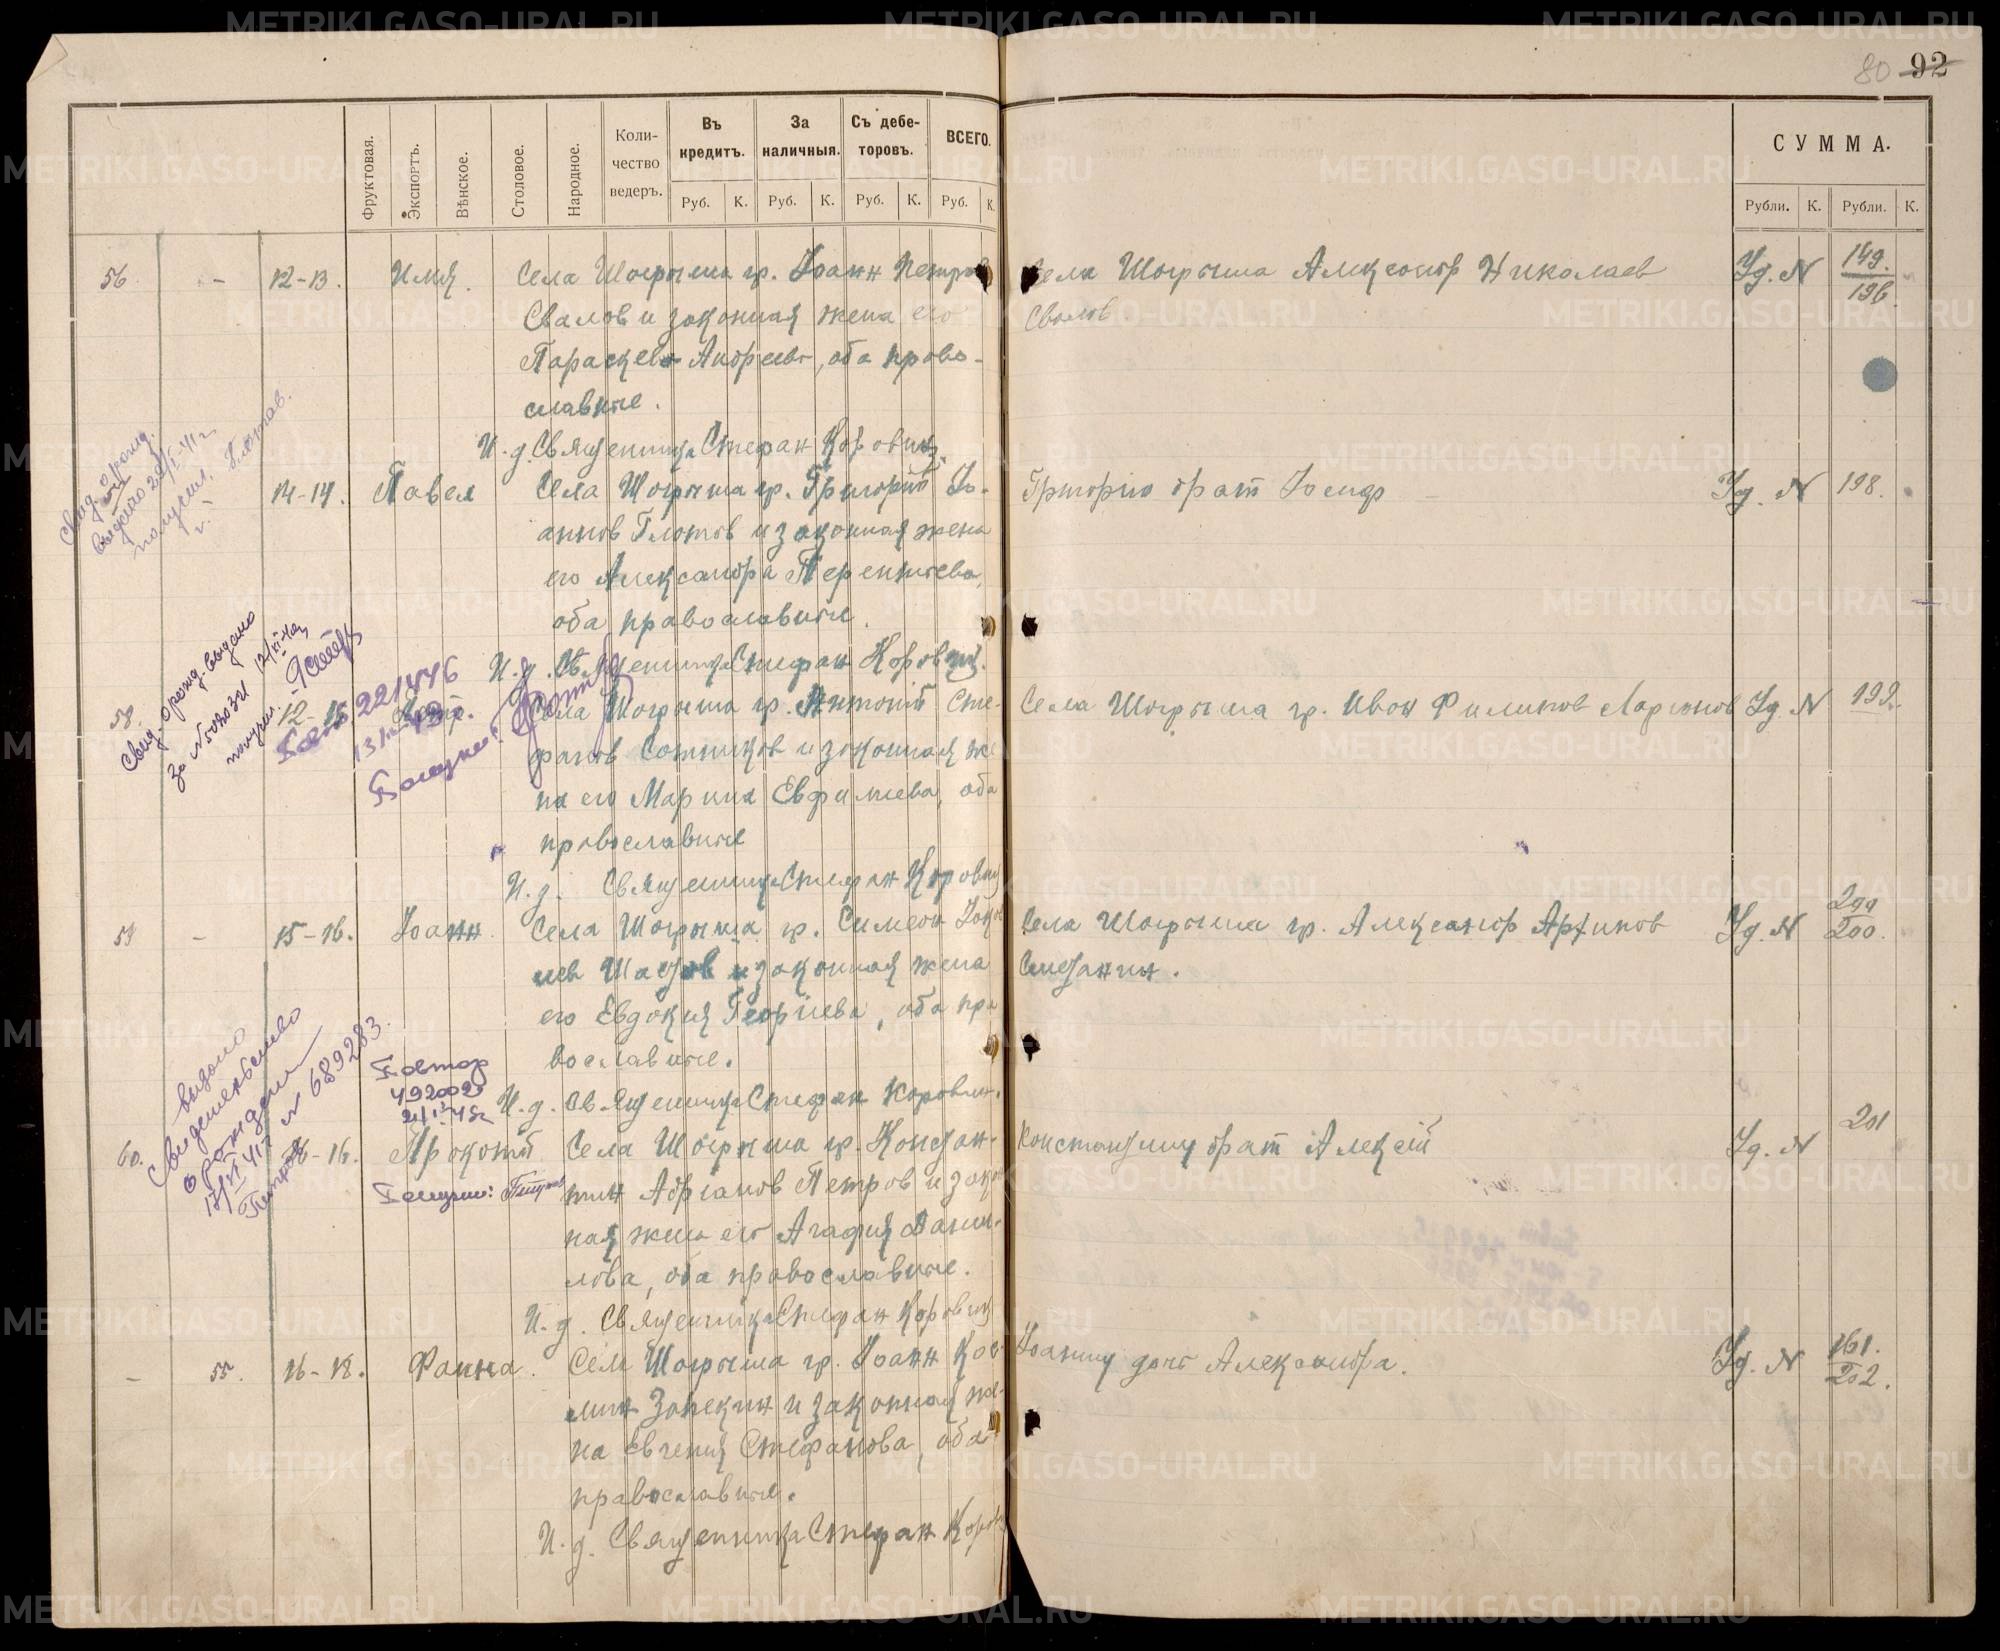 80 92
Фруктовая.
Экспортъ.
Вѣнское.
Столовое.
Народное.
Коли-
чество
ведеръ.
Въ
кредитъ.
За
наличныя.
Съ дебе-
торовъ.
ВСЕГО.
Руб. К. Руб. К. Руб. К. Руб. К.
СУММА.
Рубли. К. Рубли. К.
56. - 12-13. Илия. Села Шогрыша гр. Іоанн Петров
Свалов и законная жена его
Параскева Андреева, оба право-
славные.
И. д. Священника Стефан Коровин.
Села Шогрыша Александр Николаев
Свалов
Уд. N 149.
196.
14-14. Павел Села Шогрыша гр. Григорій Іо-
аннов Глотов и законная жена
его Александра Терентьева,
оба православные.
И. д. Священника Стефан Коровин.
Григорію брат Іосиф
Уд. N 198.
Свид. о рожд.
выдано
получил. Глотов.
58. 12-15 Села Шогрыша гр. Антоній Сте-
фанов Сотников и законная же
на его Марина Евфимиева, оба
православные
И. д. Священника Стефан Коровин
Села Шогрыша гр. Иван Филипов Ларионов
Уд. N 199.
Свид. о рожд. выдано
за № 50
получил.
221446
59 - 15-16. Іоанн. Села Шогрыша гр. Симеон Іако
лев и законная жена
его Евдокия Георгиева, оба пра
вославные.
И. д. Священника Стефан Коровин.
Села Шогрыша гр. Александр Архипов
Уд. N 200
200.
выдано
Свидетельство
о рождении
17/VI 41г № 689283.
Петров
Повтор
492002
60. 16-16. Прокопій Села Шогрыша гр. Констан-
тин Адрианов Петров и закон
ная жена его Агафия Дани-
лова, оба православные.
И. д. Священника Стефан Коровин
Получил: Петров
Константину брат Алексій
Уд. N 201
- 55. 16-18. Фаина. Села Шогрыша гр. Іоанн Кос-
мин и законная же-
на Евгения Стефанова, оба
православные.
И. д. Священника Стефан Коров
Іоанну дочь Александра.
Уд. N 161.
202.
METRIKI.GASO-URAL.RU